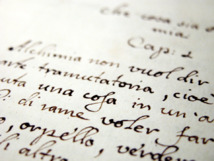 che cosa sia
mia:
Cap: 1
Alchimia non vuol dir
arte tramutatoria, cioè
una cosa in un'a
: di rame voler far
, orpello, verder